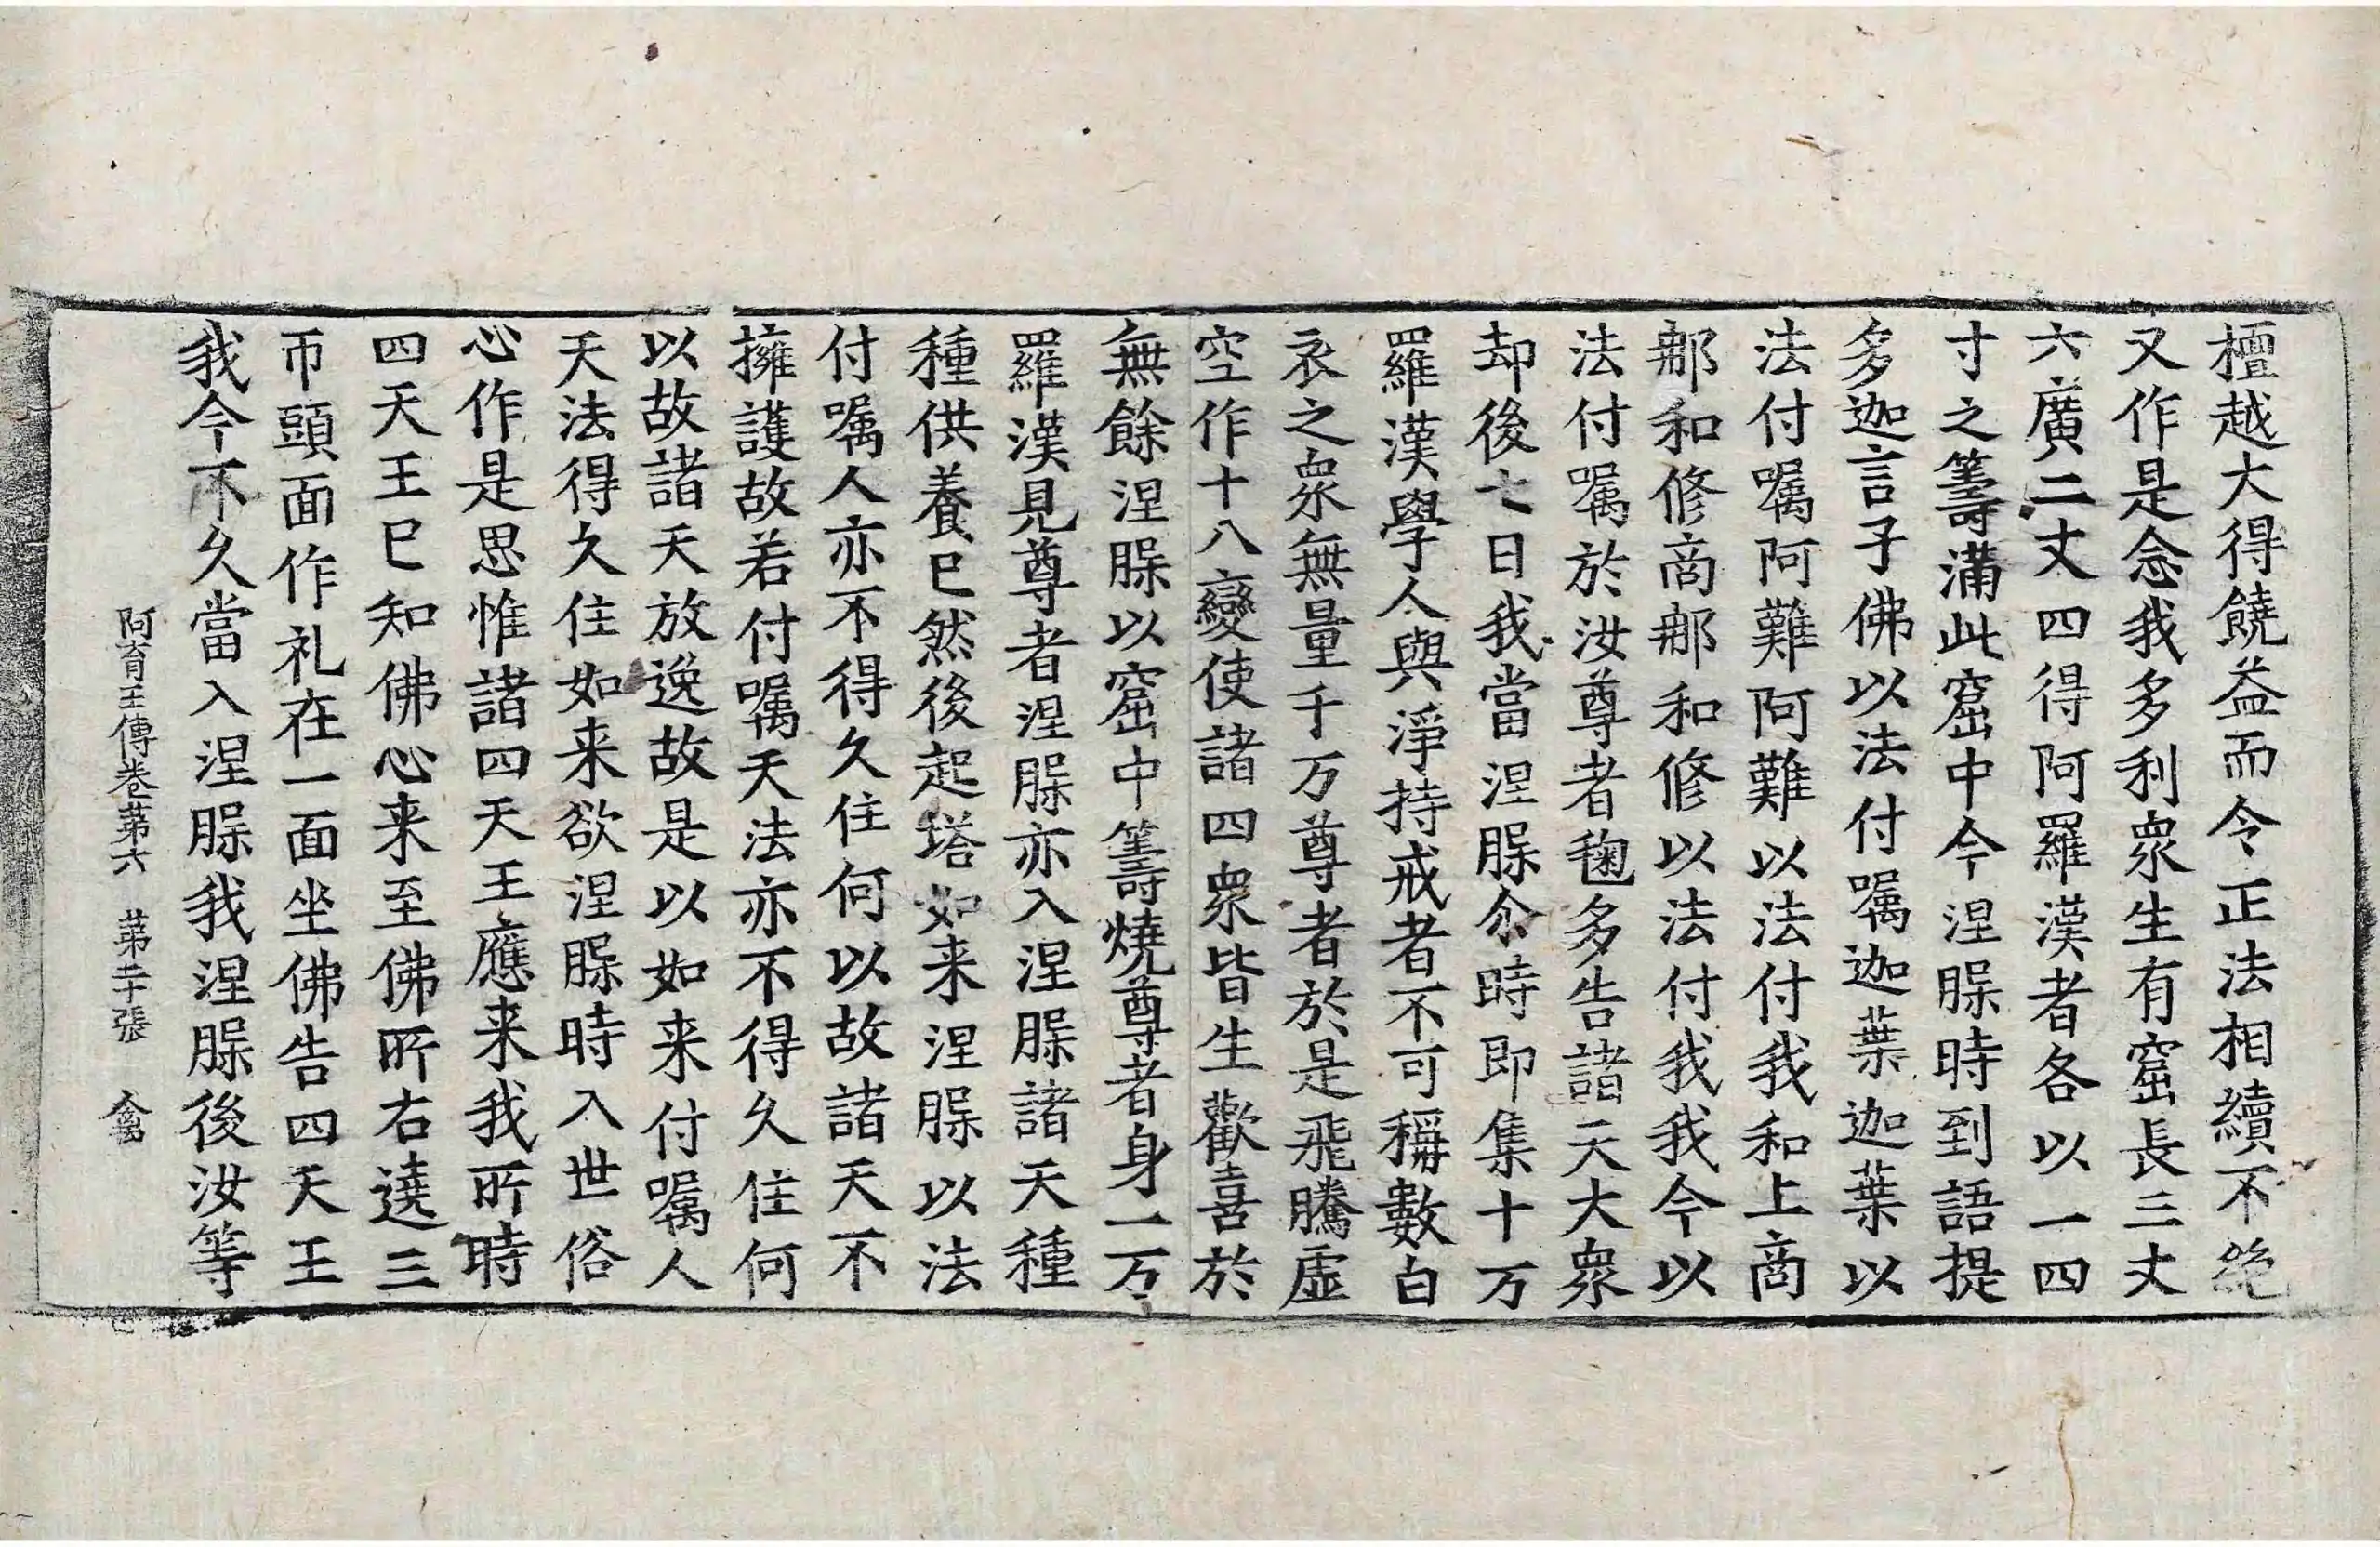 檀越大得饒益而令正法相續不絶
又作是念我多利衆生有窟長三丈
六廣二丈四得阿羅漢者各以一四
寸之籌滿此窟中今涅槃時到語提
多迦言子佛以法付嘱迦葉迦葉以
法付嘱阿難阿難以法付我和上商
那和修商那和修以法付我我今以
法付嘱於汝尊者毱多告諸天大衆
却後七日我當涅槃尒時即集十万
羅漢學人與淨持戒者不可稱數白
衣之衆無量千万尊者於是飛騰虛
空作十八變使諸四衆皆生歡喜於
無餘涅槃以窟中籌燒尊者身一万
羅漢見尊者涅槃亦入涅槃諸天種
種供養已然後起塔如来涅槃以法
付嘱人亦不得久住何以故諸天不
擁護故若付嘱天法亦不得久住何
以故諸天放逸故是以如来付嘱人
天法得久住如来欲涅槃時入世俗
心作是思惟諸四天王應来我所時
四天王已知佛心来至佛所右遶三
帀頭面作礼在一面坐佛告四天王
我今不久當入涅槃我涅槃後汝等
阿育王傳卷第六 第二十張 禽